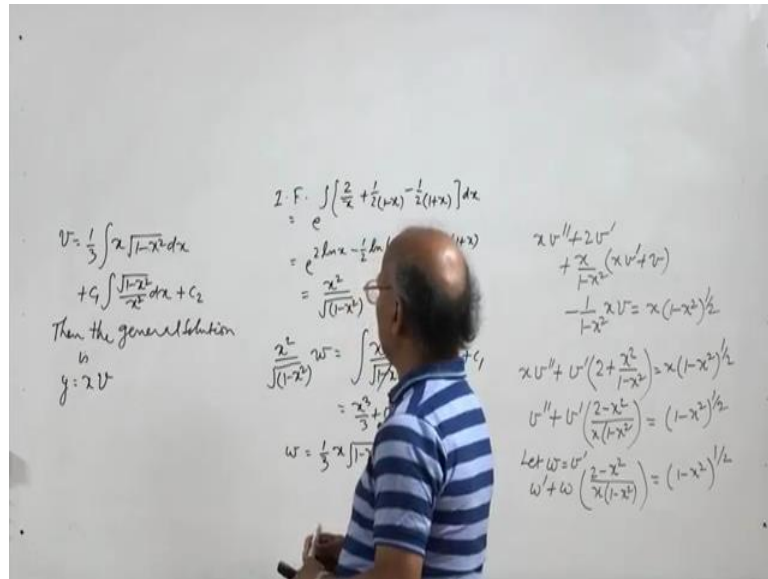 v = 1/3 ∫ x √(1-x²) dx
+ c₁ ∫ √(1-x²)/x² dx + c₂
Then the general solution
is
y = xv
I.F. ∫[2/x + 1/2(1-x) - 1/2(1+x)]dx
= e
= e^(2 ln x - 1/2 ln +x)
= x²/√(1-x²)
x²/√(1-x²) w = ∫ x + c₁
= x³/3 +
w = 1/3 x √1-x
xv'' + 2v'
+ x/(1-x²) (xv' + v)
- 1/(1-x²) xv = x(1-x²)^(1/2)
xv'' + v'(2 + x²/(1-x²)) = x(1-x²)^(1/2)
v'' + v'((2-x²)/(x(1-x²))) = (1-x²)^(1/2)
Let w = v'
w' + w((2-x²)/(x(1-x²))) = (1-x²)^(1/2)